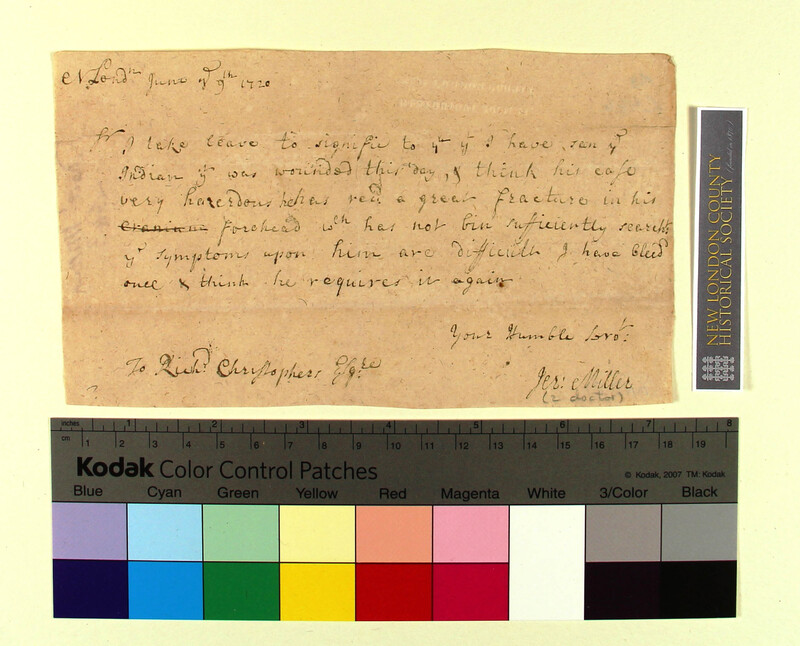 N Lond^n June y^e 9^th 1720
S^r I take leave to signifie to y^u y^t I have sen y^e
Indian y^t was wounded this day, & think his case
very hazerdous he has rec^d a great fracture in his
Cranium forehead w^ch has not bin sufficiently search^t
y^e symptoms upon him are difficult I have bleed
once & think he requires it again
Your Humble Serv^t:
To Rich^d Christophers Esq^re
Jer: Miller
(2 doctor)
NEW LONDON COUNTY
HISTORICAL SOCIETY
inches 1 2 3 4 5 6 7 8
cm 1 2 3 4 5 6 7 8 9 10 11 12 13 14 15 16 17 18 19
Kodak Color Control Patches
© Kodak, 2007 TM: Kodak
Blue Cyan Green Yellow Red Magenta White 3/Color Black